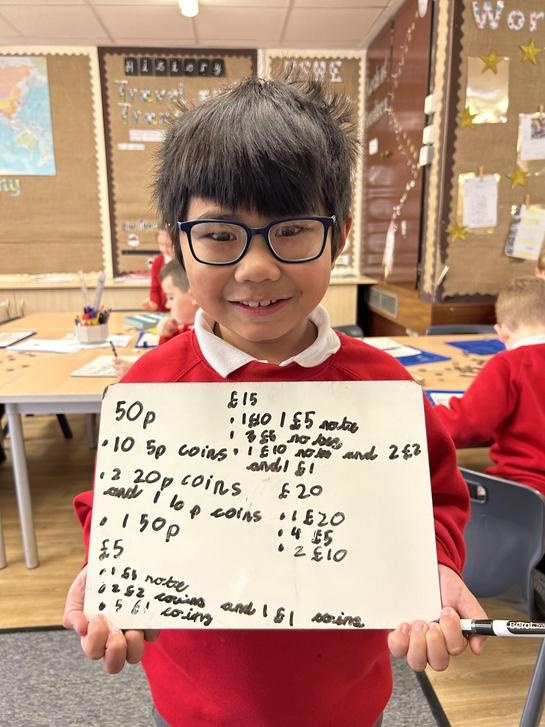 History
Travel and
Wor
50p
• 10 5p coins
• 2 20p coins
and 1 10p coins
• 1 50p
£5
• 1 £5 note
• 2 £2 coins and 1 £1 coins
• 5 £1 coins
£15
• 1 £10 1 £5 note
• 3 £5 notes
• 1 £10 note and 2 £2
and 1 £1
£20
• 1 £20
• 4 £5
• 2 £10